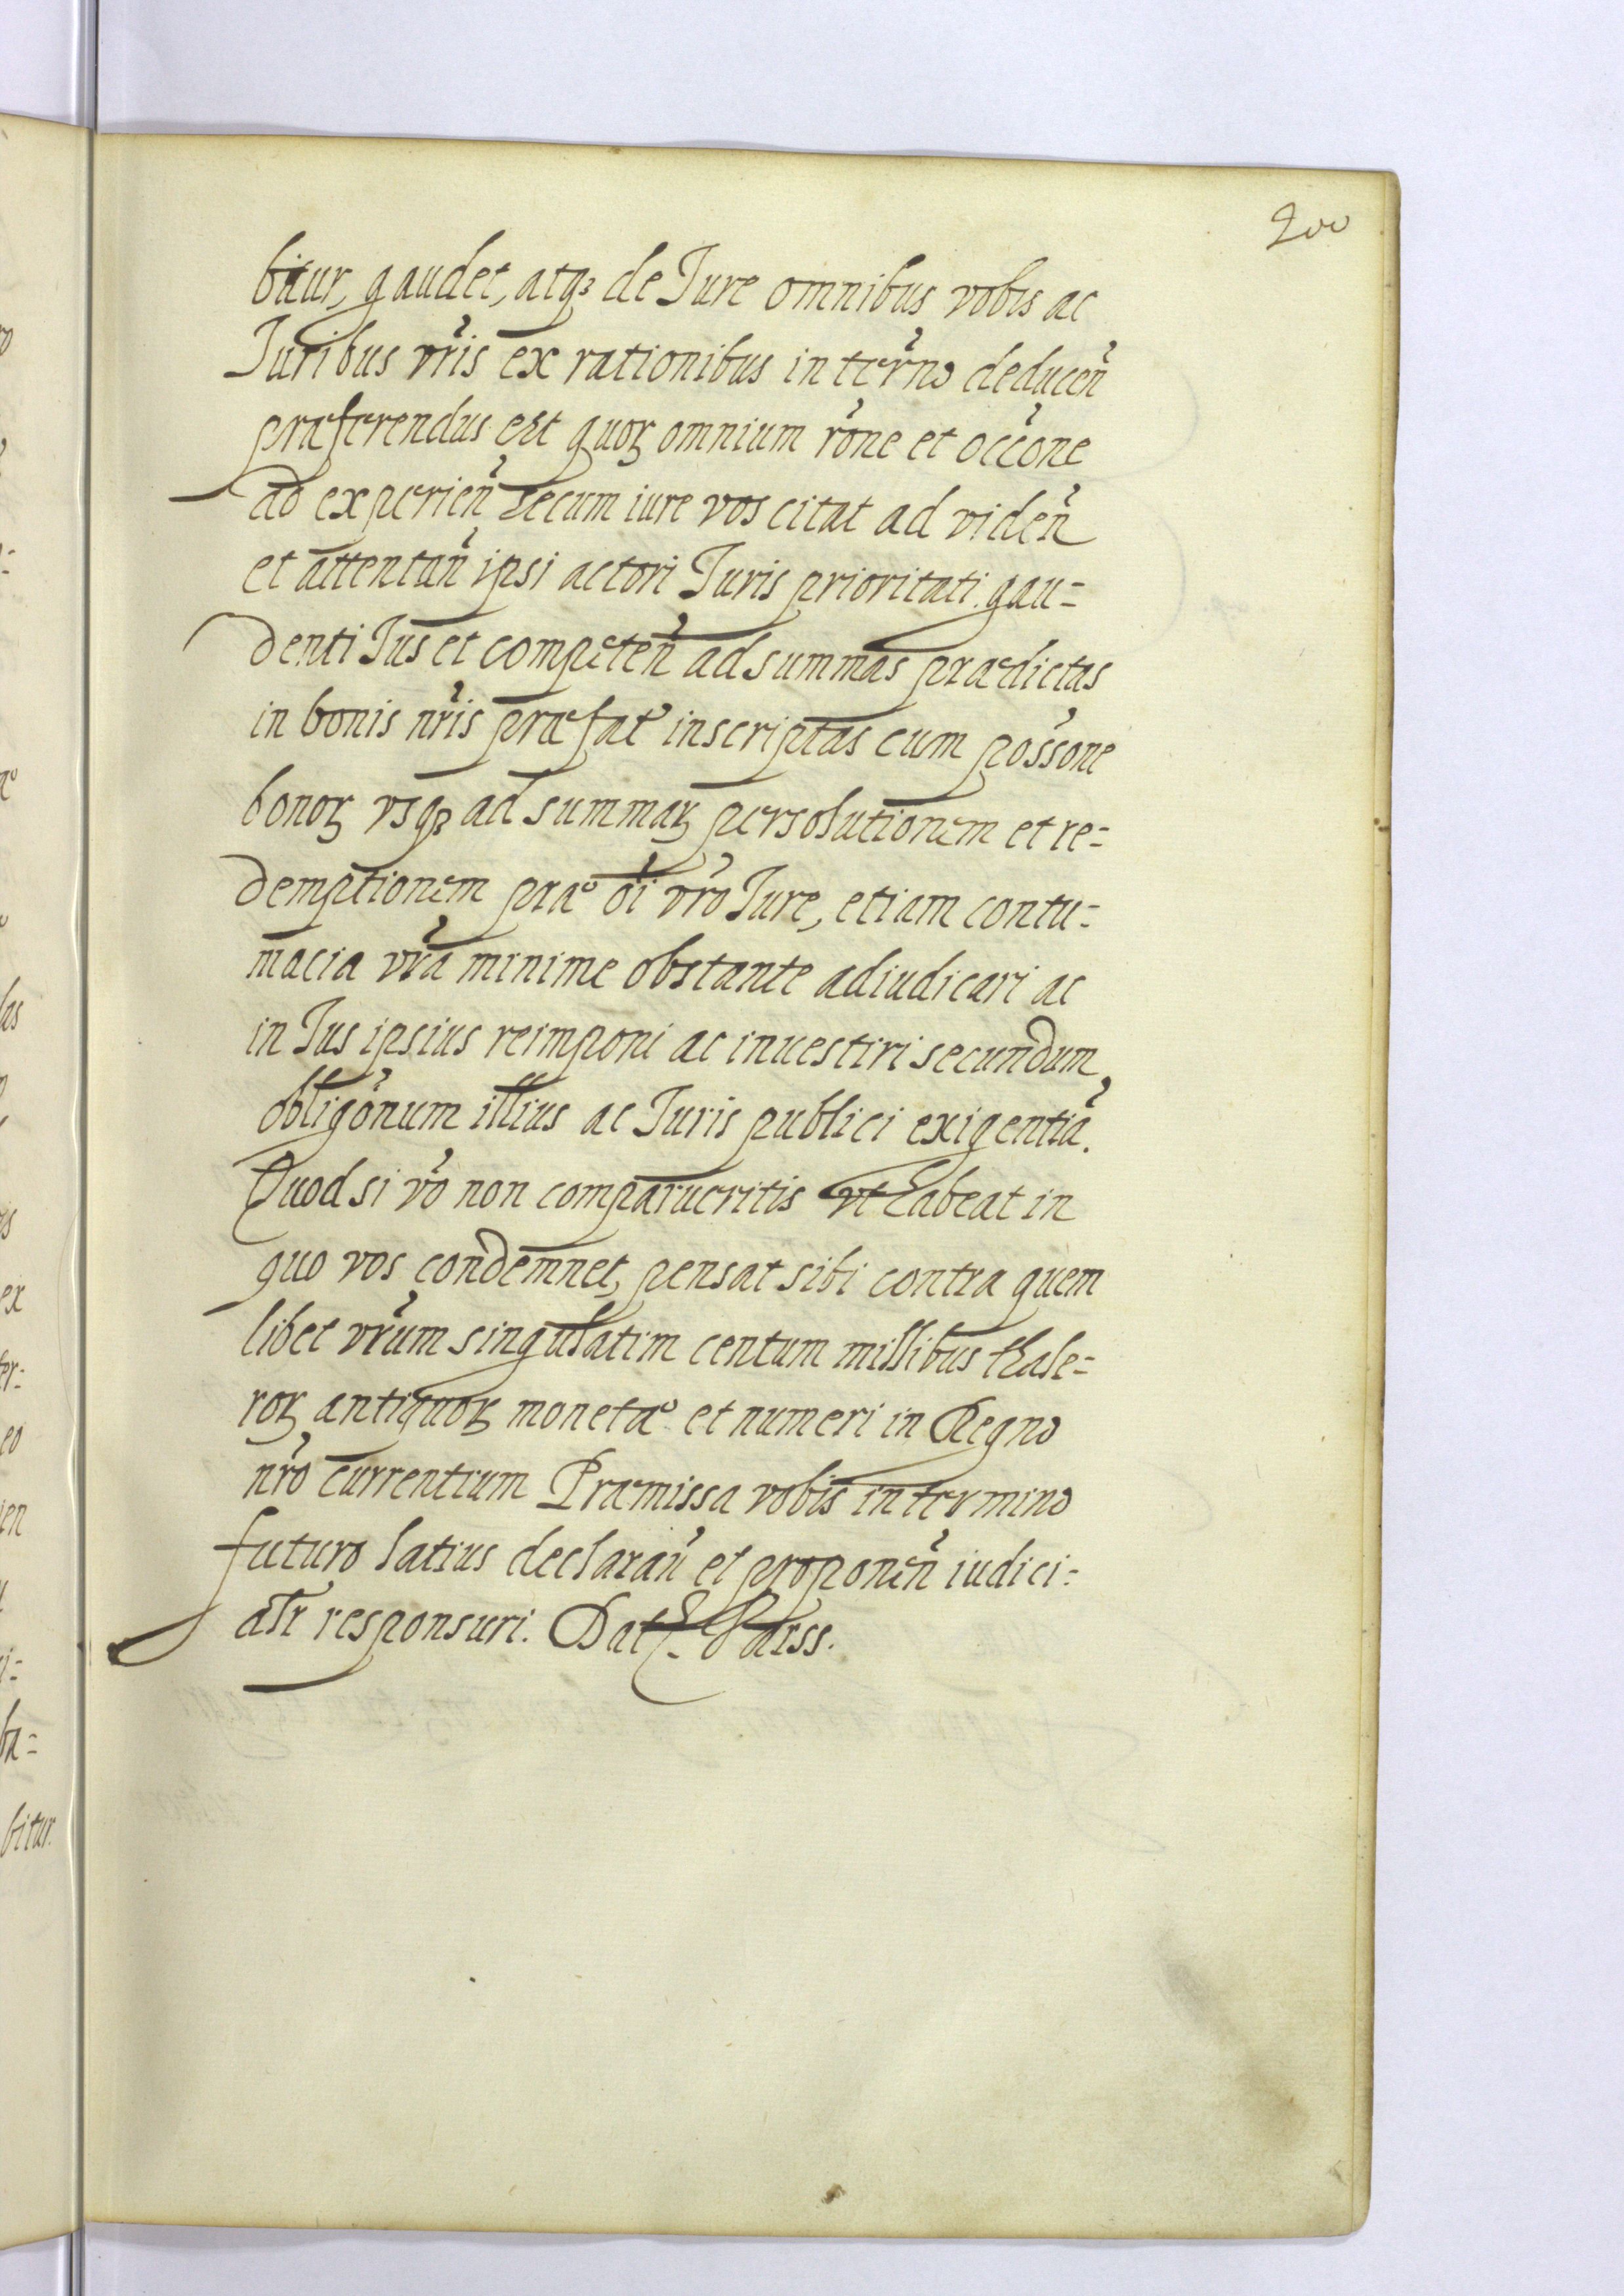 200
bitur, gaudet, atqꝫ de Jure omnibus vobis ac
Juribus vr̃is ex rationibus in ter̃no deducen̄
præferendus est quoꝝ omnium rõne et occõne
ad experien̄ secum iure vos citat ad viden̄
et attentan̄ ipsi actori Juris prioritati gau=
denti Jus et competen̄ ad summas prædictas
in bonis nr̃is præfať inscriptas cum possõne
bonoꝝ vsqꝫ ad summaꝝ persolutionem et re=
demptionem præ oĩ vr̃o Jure, etiam contu=
macia vr̃a minime obstante adiudicari ac
in Jus ipsius reimponi ac inuestiri secundum
obligõnum illius ac Juris publici exigentiã.
Quod si vṽo non comparueritis vt habeat in
quo vos condemnet, pensat sibi contra quem
libet vr̃um singulatim centum millibus thale=
roꝝ antiquoꝝ monetæ et numeri in Regno
nr̃o currentium Præmissa vobis in termino
futuro latius declaran̄ et proponen̄ iudici=
alr̃ responsuri. Dat Varss.
las
ex
fer=
eo
ba=
bitur